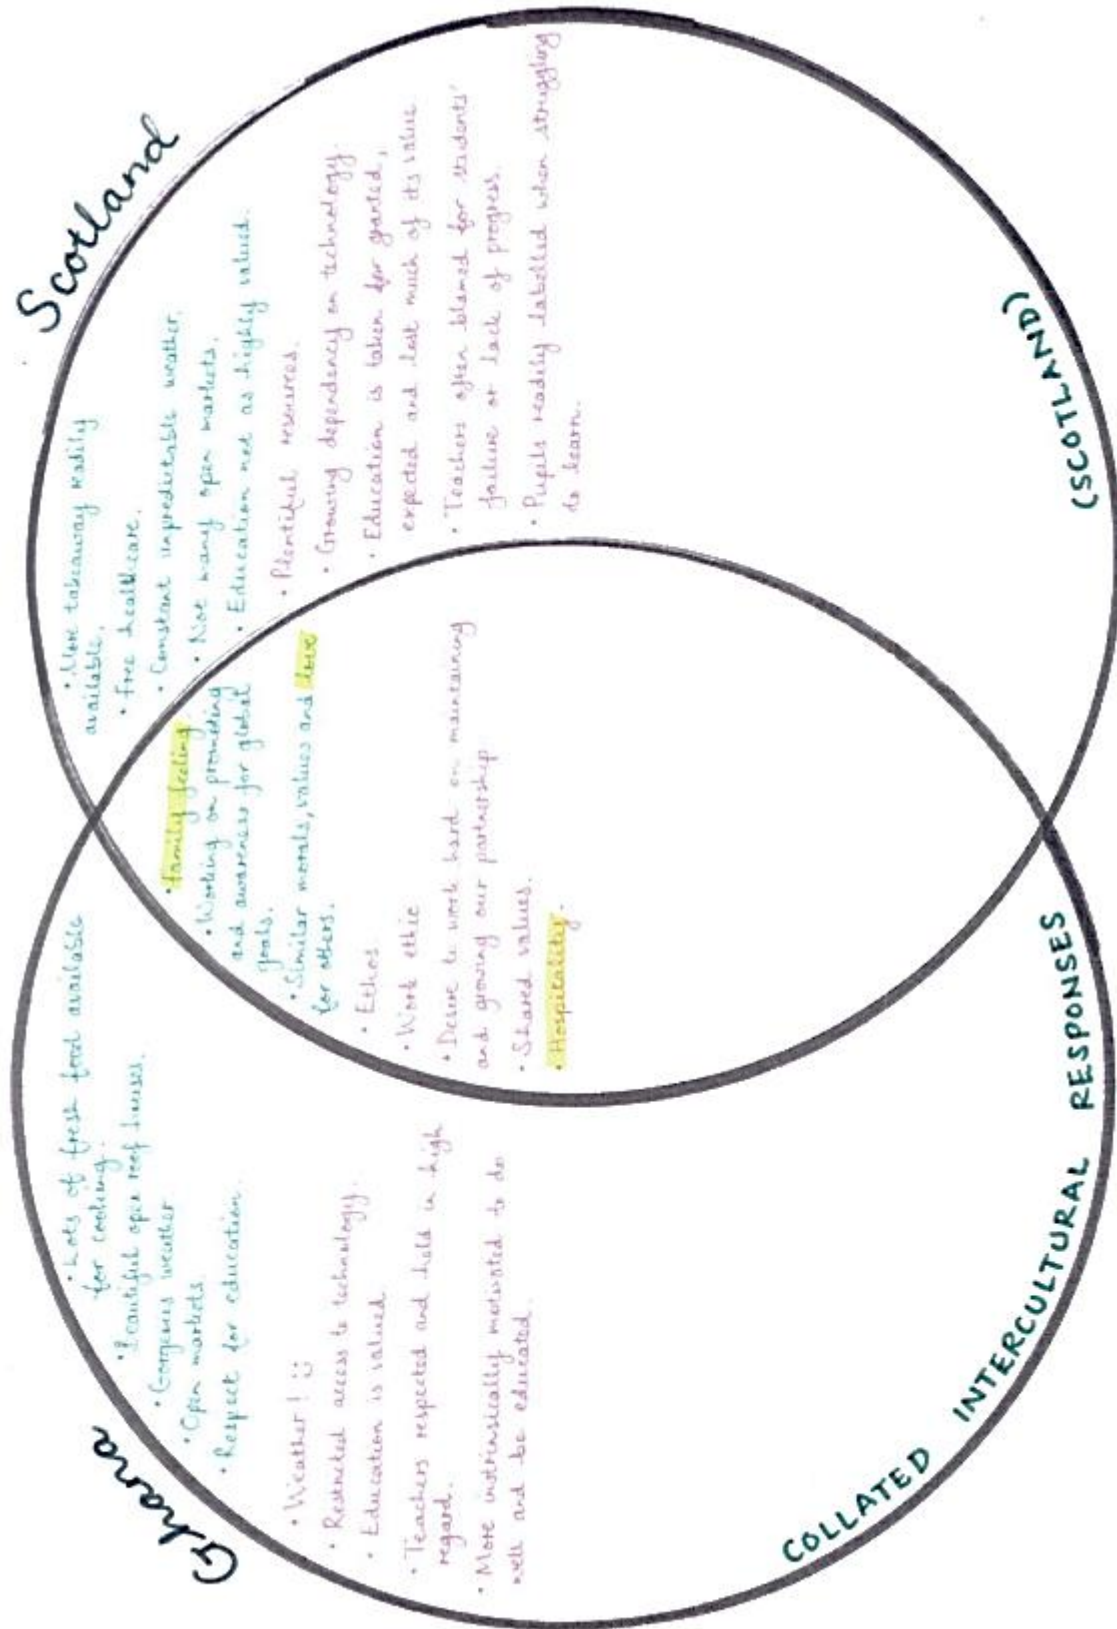 Ghana
• Lots of fresh food available
for cooking.
• Beautiful open roof houses.
• Gorgeous weather
• Open markets
• Respect for education.
• Weather! :)
• Restricted access to technology.
• Education is valued
• Teachers respected and held in high
regard.
• More instrinsically motivated to do
well and be educated.
• Family feeling.
• Working on promoting
and awareness for global
goals.
• Similar morals, values and love
for others.
• Ethos
• Work ethic
• Desire to work hard on maintaining
and growing our partnership
• Shared values.
• Hospitality.
Scotland
• More takeaway readily
available.
• Free healthcare.
• Constant unpredictable weather.
• Not many open markets.
• Education not as highly valued.
• Plentiful resources.
• Growing dependency on technology.
• Education is taken for granted,
expected and lost much of its value
• Teachers often blamed for students'
failure or lack of progress.
• Pupils readily labelled when struggling
to learn.
COLLATED INTERCULTURAL RESPONSES
(SCOTLAND)